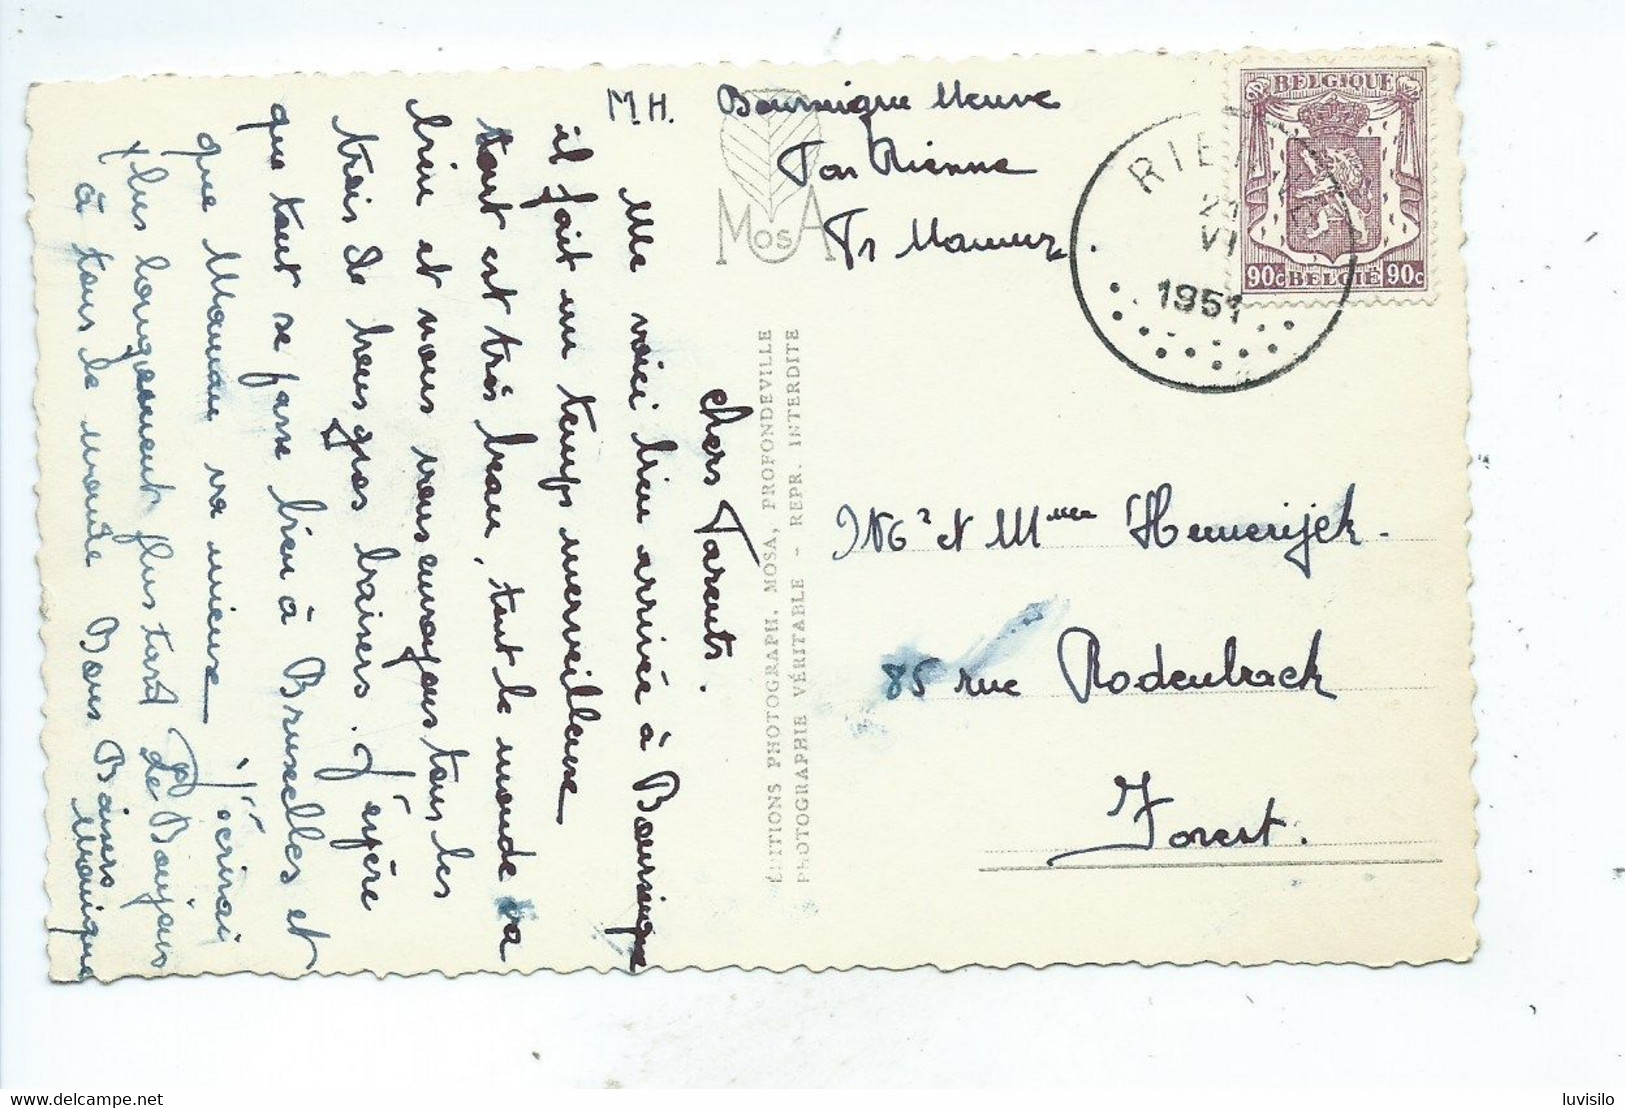 M.H. Bourseigne Neuve
Par Rienne
Pr Namur.
RIENNE
VI
1951
BELGIQUE
90c BELGIE 90c
MOSA
ÉDITIONS PHOTOGRAPH. MOSA, PROFONDEVILLE
PHOTOGRAPHIE VÉRITABLE - REPR. INTERDITE
Chers Parents.
Me voici bien arrivée à Bourseigne
il fait un temps merveilleux
tout est très beau, tout le monde va
bien et nous vous envoyons tous les
trois de bons gros baisers. J'espère
que tout se passe bien à Bruxelles et
que Maman va mieux J'écrirai
plus longuement plus tard Le Bonjour
à tous le monde Bons Baisers
Monique
et Hemerijck.
85 rue Rodenback
Forest.
luvisilo